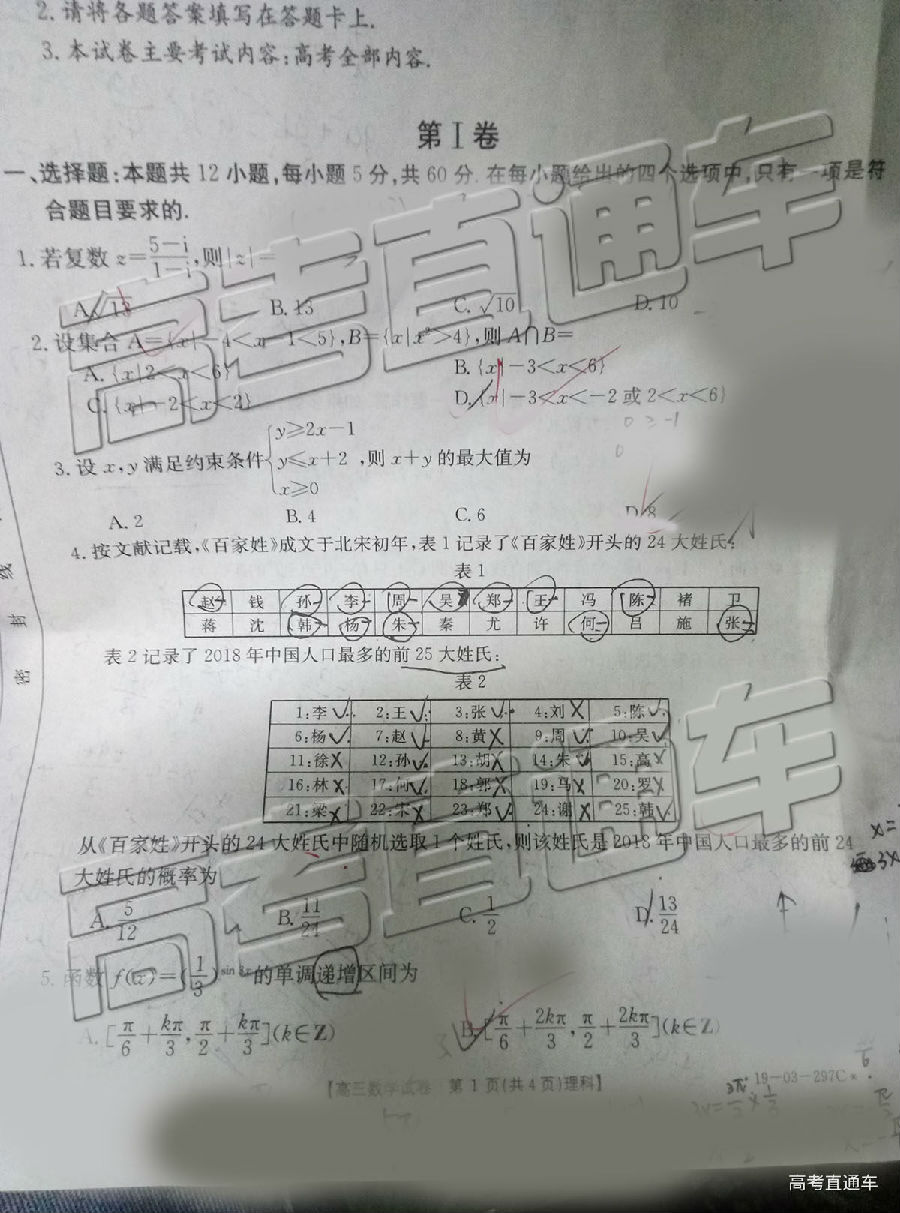 2.请将各题答案填写在答题卡上.
3.本试卷主要考试内容:高考全部内容.
第Ⅰ卷
一、选择题:本题共12小题,每小题5分,共60分.在每小题给出的四个选项中,只有一项是符
合题目要求的.
1.若复数z=(5-i)/(1-i),则|z|=
A.√13 B.13 C.√10 D.10
2.设集合A={x|-4<x-1<5},B={x|x²>4},则A∩B=
A.{x|2<x<6} B.{x|-3<x<6}
C.{x|-2<x<2} D.{x|-3<x<-2或2<x<6}
0≥-1
0
3.设x,y满足约束条件{y≥2x-1 y≤x+2 x≥0,则x+y的最大值为
A.2 B.4 C.6 D.8
4.按文献记载,《百家姓》成文于北宋初年,表1记录了《百家姓》开头的24大姓氏:
表1
赵 钱 孙 李 周 吴 郑 王 冯 陈 褚 卫
蒋 沈 韩 杨 朱 秦 尤 许 何 吕 施 张
表2记录了2018年中国人口最多的前25大姓氏:
表2
1:李 2:王 3:张 4:刘 5:陈
6:杨 7:赵 8:黄 9:周 10:吴
11:徐 12:孙 13:胡 14:朱 15:高
16:林 17:何 18:郭 19:马 20:罗
21:梁 22:宋 23:郑 24:谢 25:韩
从《百家姓》开头的24大姓氏中随机选取1个姓氏,则该姓氏是2018年中国人口最多的前24
大姓氏的概率为
A.5/12 B.11/24 C.1/2 D.13/24
x=
3x
5.函数f(x)=(1/3)^sin 3x的单调递增区间为
A.[π/6+kπ/3,π/2+kπ/3](k∈Z) B.[π/6+2kπ/3,π/2+2kπ/3](k∈Z)
【高三数学试卷 第1页(共4页)理科】
19-03-297C
线
封
密
高考直通车
高考直通车
高考直通车